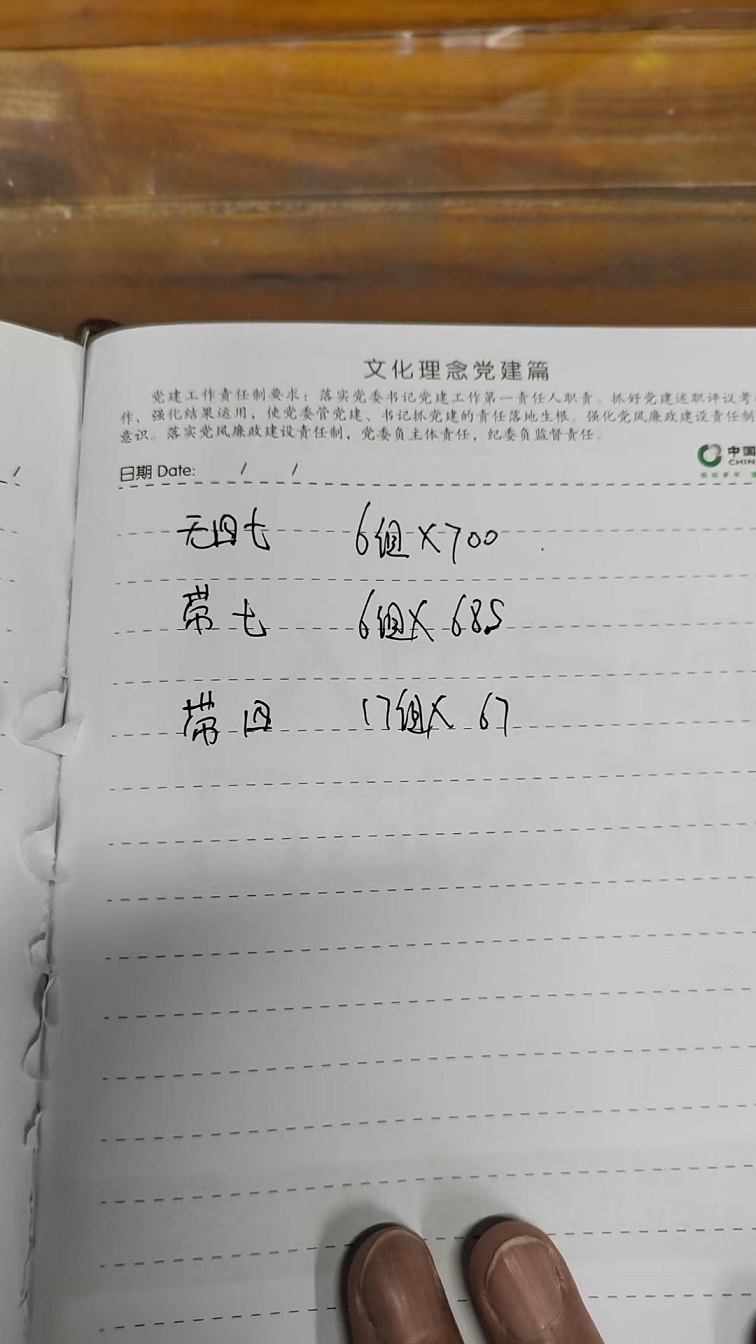 文化理念党建篇
党建工作责任制要求：落实党委书记党建工作第一责任人职责。抓好党建述职评议考
作，强化结果运用，使党委管党建、书记抓党建的责任落地生根。强化党风廉政建设责任制
意识。落实党风廉政建设责任制，党委负主体责任，纪委负监督责任。
中国
CHIN
日期 Date: / /
无四七 6组×700
带七 6组×685
带四 17组×67